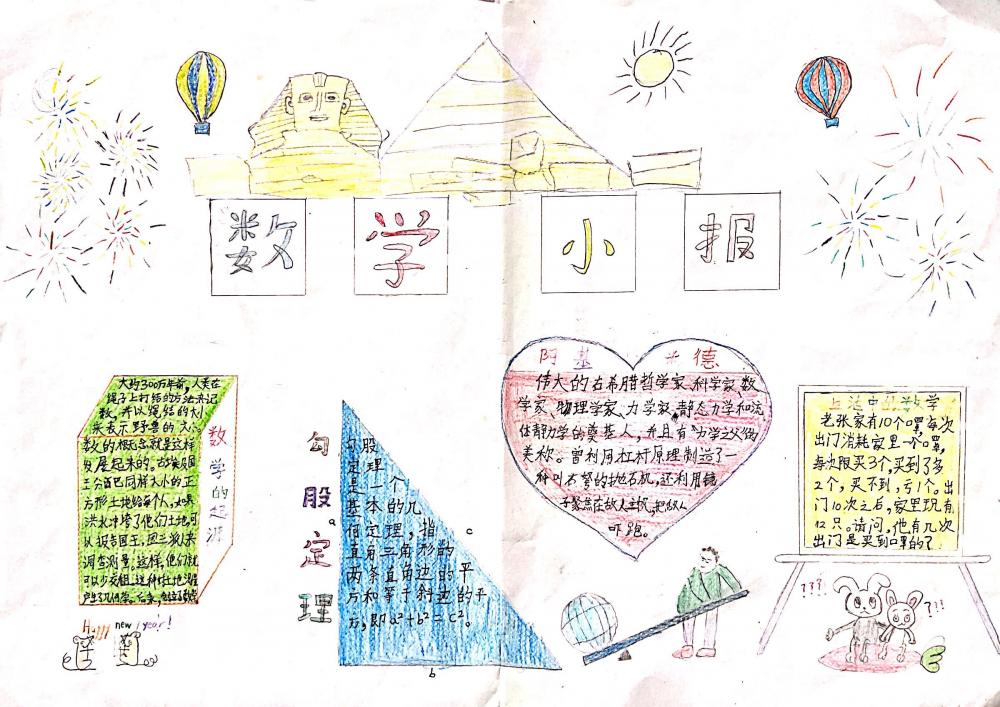 数学小报
大约300万年前，人类在
绳子上打结的方法来记
数，并以绳结的大小
来表示野兽的大小。
数的概念就是这样
发展起来的。古埃及国
王分自己同样大小的正
方形土地给每个人，如果
洪水冲垮了他们土地可
以报告国王，国王派人来
调查测量。这样，他们就
可以少交租。这种土地测量
产生了几何学。后来，
数学的起源
Happy new year!
勾股定理
勾股
定理
是一个
基本的几
何定理，指
直角三角形的
两条直角边的平
方和等于斜边的平
方，即a²+b²=c²。
b
阿基米德
伟大的古希腊哲学家、科学家、数
学家、物理学家、力学家，静态力学和流
体静力学的奠基人，并且有“力学之父”的
美称。曾利用杠杆原理制造了一
种叫石弩的抛石机，还利用镜
子聚焦在敌人主帆，把敌人
吓跑。
生活中的数学
老张家有10个口罩，每次
出门消耗家里一个口罩，
每次限买3个，买到了多
2个，买不到，亏1个。出
门10次之后，家里现有
12只。请问，他有几次
出门是买到口罩的？
???
?!!